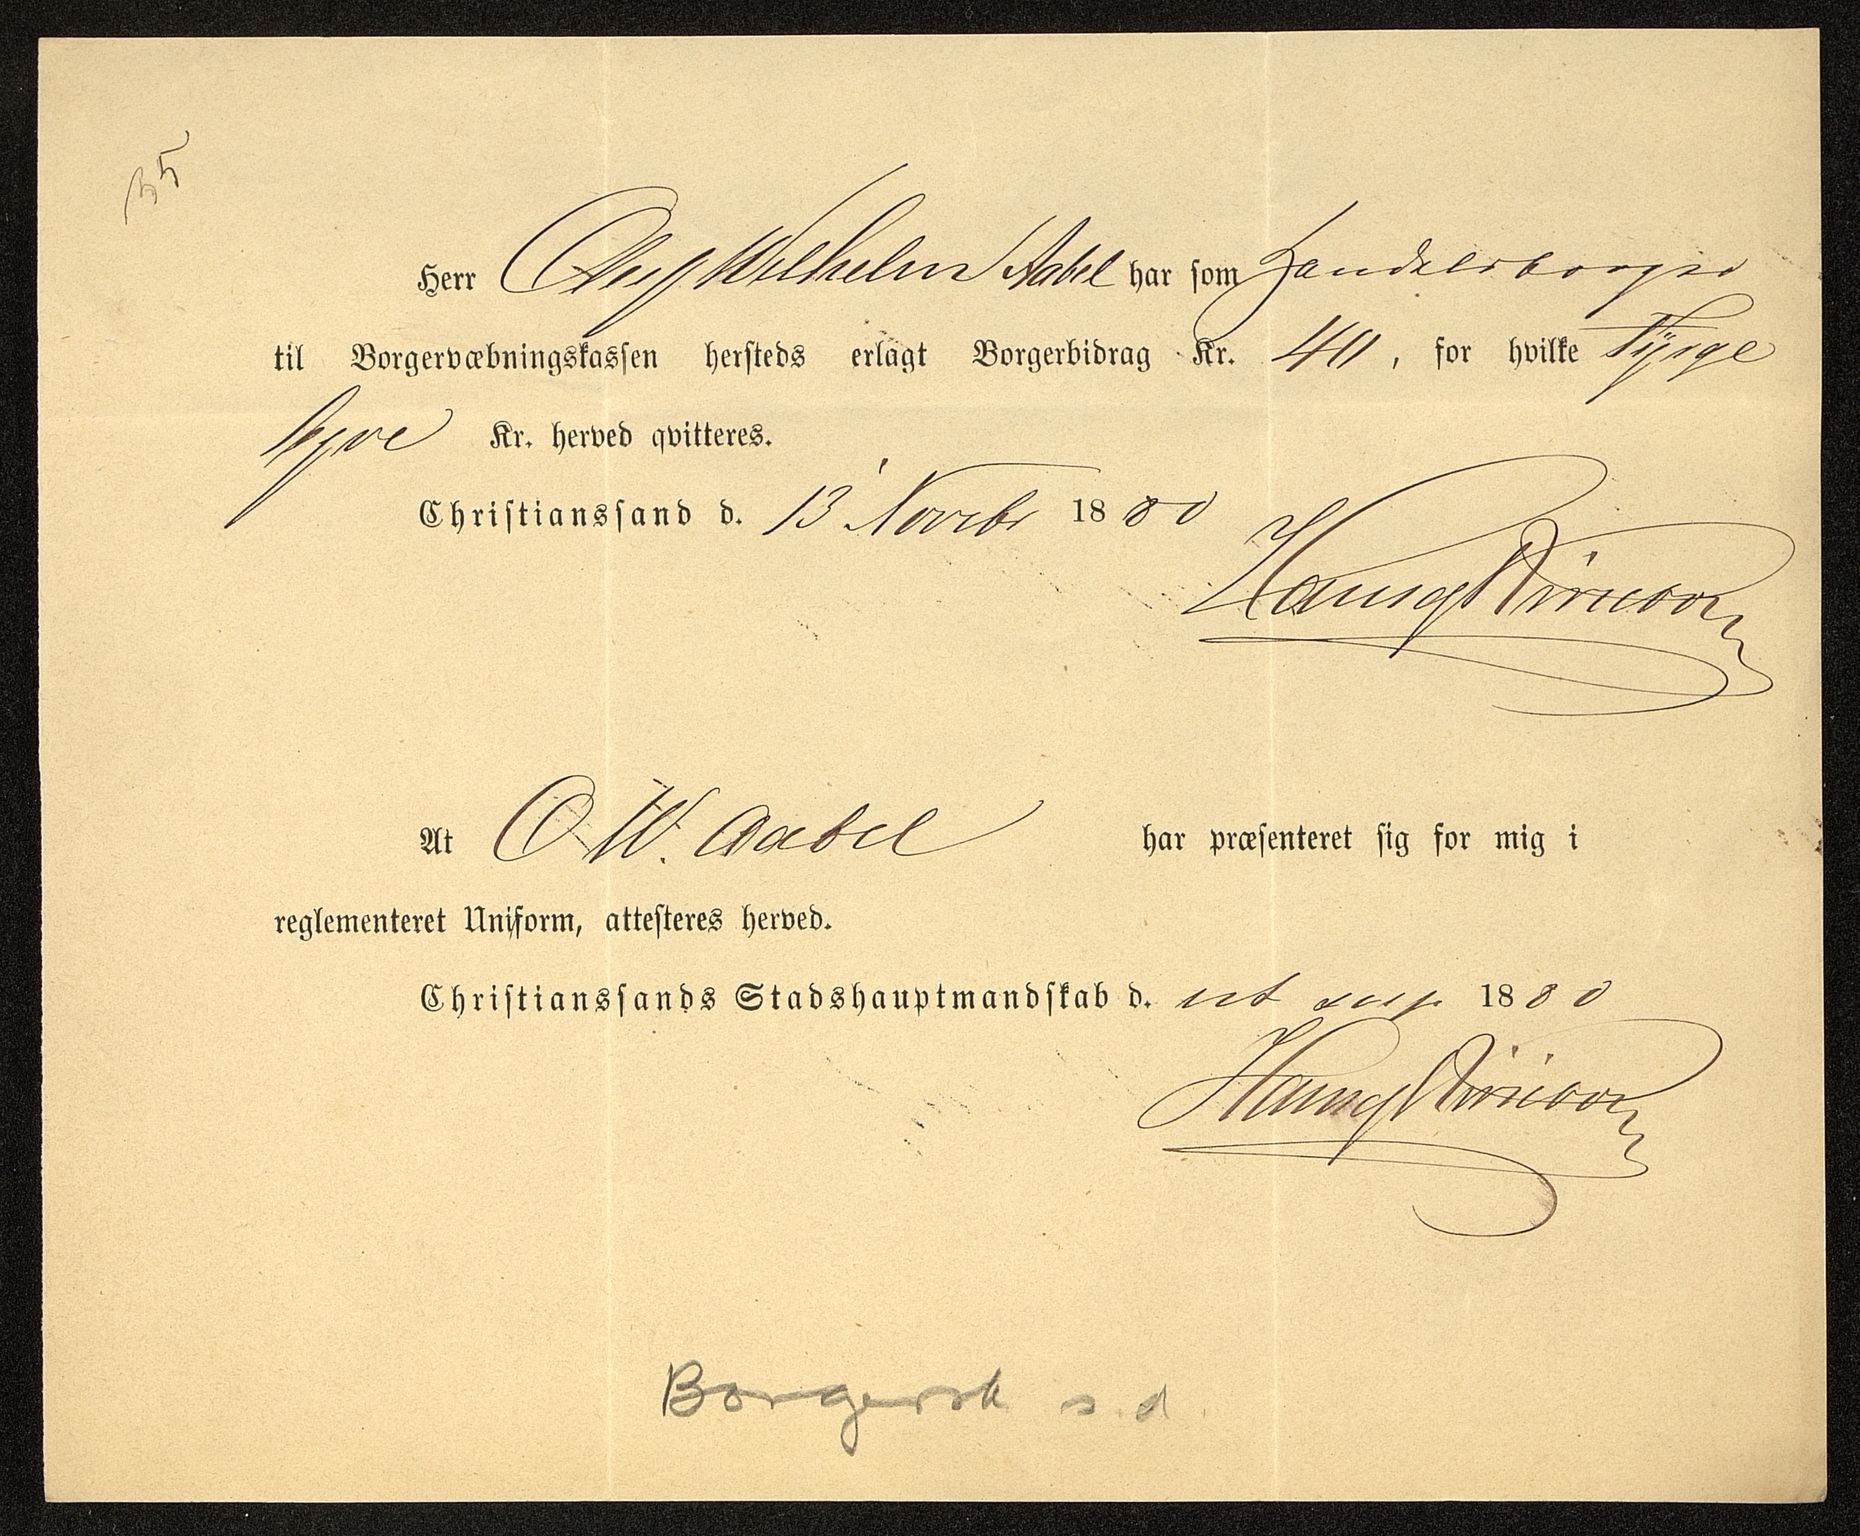 35
Herr Oluf Wilhelm Aabel har som Handelsborger
til Borgervæbningskassen hersteds erlagt Borgerbidrag Kr. 40, for hvilke Fyrge
tyve Kr. herved qvitteres.
Christianssand d. 13 Novebr 1880
At O. W. Aabel har præsenteret sig for mig i
reglementeret Uniform, attesteres herved.
Christianssands Stadshauptmandskab d. ut sup 1880
Borgersk s. d.